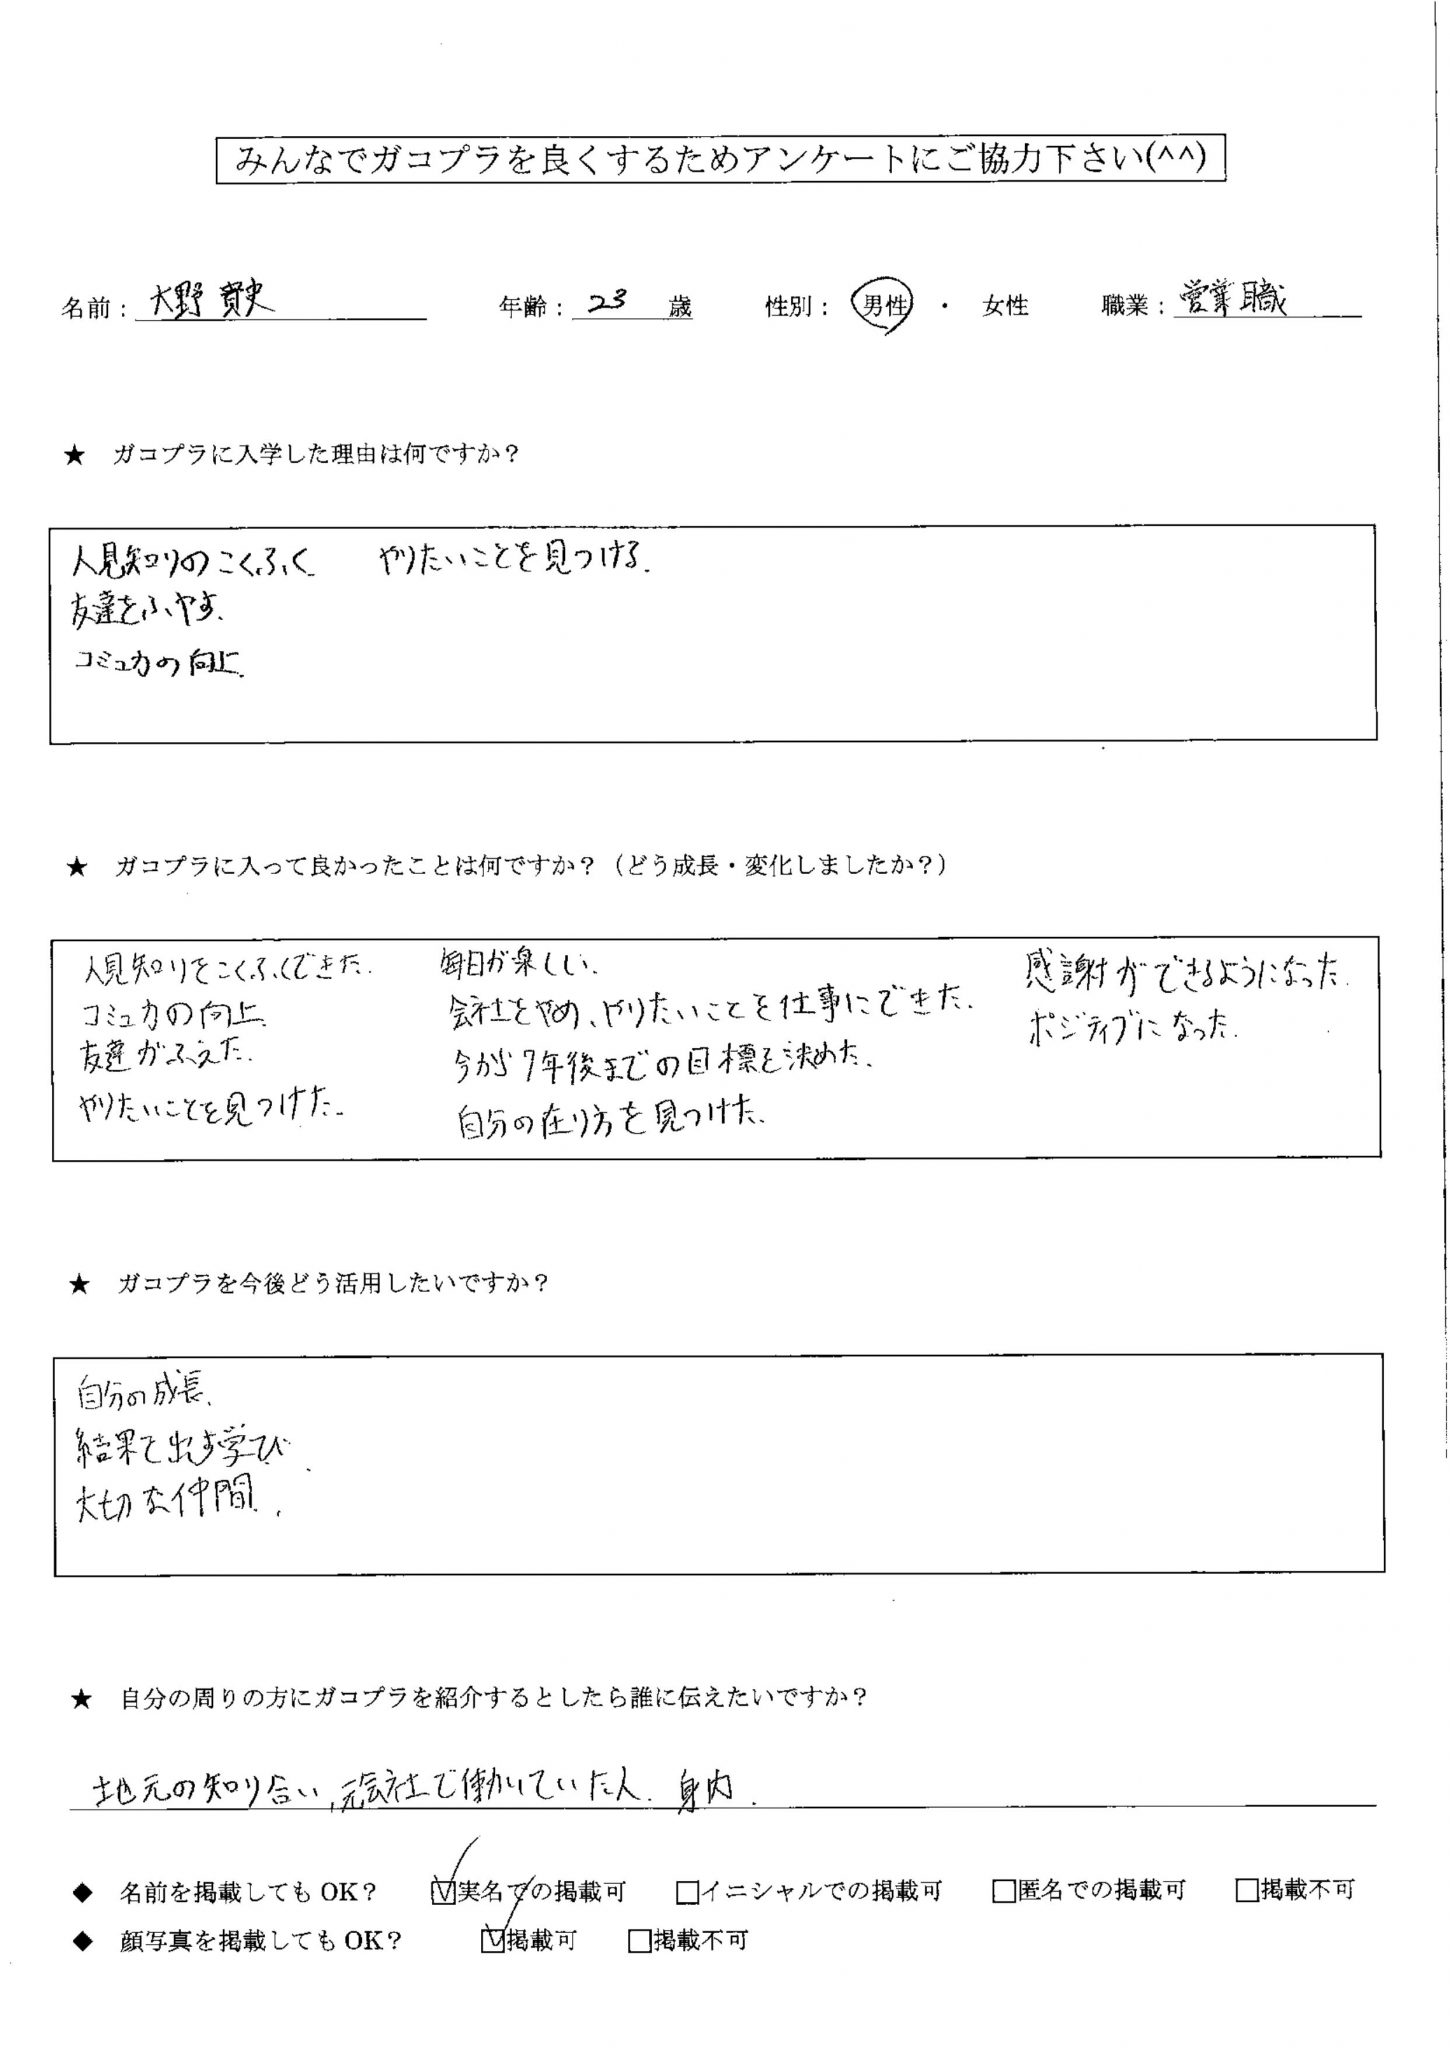 みんなでガコプラを良くするためアンケートにご協力下さい(^^)
名前：大野 貴史 年齢：23 歳 性別： 男性 ・ 女性 職業：営業職
★ ガコプラに入学した理由は何ですか？
人見知りのこくふく. やりたいことを見つける.
友達をふやす.
コミュ力の向上.
★ ガコプラに入って良かったことは何ですか？（どう成長・変化しましたか？）
人見知りをこくふくできた.
コミュ力の向上.
友達がふえた.
やりたいことを見つけた.
毎日が楽しい.
会社をやめ、やりたいことを仕事にできた.
今から7年後までの目標を決めた.
自分の在り方を見つけた.
感謝ができるようになった.
ポジティブになった.
★ ガコプラを今後どう活用したいですか？
自分の成長.
結果を出す学び.
大切な仲間.
★ 自分の周りの方にガコプラを紹介するとしたら誰に伝えたいですか？
地元の知り合い,元会社で働いていた人. 身内.
◆ 名前を掲載しても OK？ ☑実名での掲載可 □イニシャルでの掲載可 □匿名での掲載可 □掲載不可
◆ 顔写真を掲載しても OK？ ☑掲載可 □掲載不可